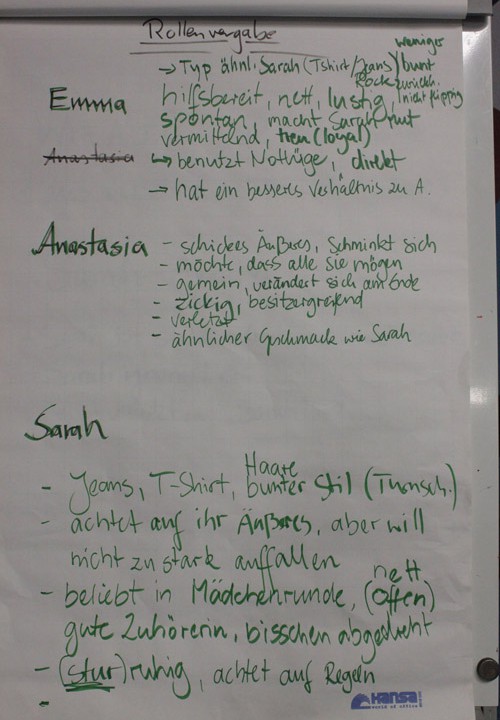 Rollenvergabe
weniger
→ Typ ähnl. Sarah (Tshirt/Jeans) bunt
Rock zurückh.
Emma hilfsbereit, nett, lustig, nicht flippig
spontan, macht Sarah mut
vermittend, treu (loyal)
Anastasia → benutzt Notlüge, direkt
→ hat ein besseres Verhältnis zu A.
Anastasia - schickes Äußeres, Schminkt sich
- möchte, dass alle sie mögen
- gemein, verändert sich am Ende
- zickig, besitzergreifend
- verletzt
- ähnlicher Geschmack wie Sarah
Sarah
Haare
- Jeans, T-Shirt, bunter Stil (Turnsch.)
- achtet auf ihr Äußeres, aber will
nicht zu stark auffallen
nett
- beliebt in Mädchenrunde, (offen)
gute Zuhörerin, bisschen abgedreht
- (stur) ruhig, achtet auf Regeln
-
Hansa
world of office